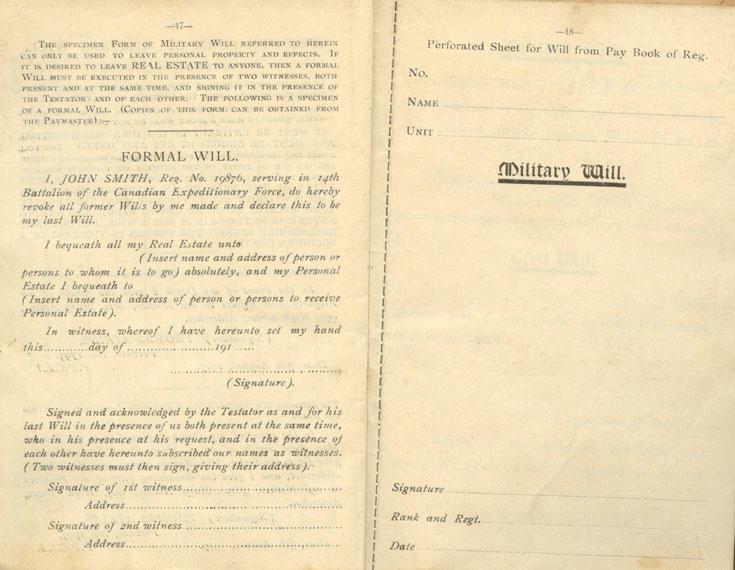 —17—
The specimen Form of Military Will referred to herein
can only be used to leave personal property and effects. If
it is desired to leave REAL ESTATE to anyone, then a formal
Will must be executed in the presence of two witnesses, both
present and at the same time, and signing it in the presence of
the Testator and of each other. The following is a specimen
of a formal Will. (Copies of this form can be obtained from
the Paymaster):—
FORMAL WILL.
I, JOHN SMITH, Reg. No. 19876, serving in 14th
Battalion of the Canadian Expeditionary Force, do hereby
revoke all former Wills by me made and declare this to be
my last Will.
I bequeath all my Real Estate unto
(Insert name and address of person or
persons to whom it is to go) absolutely, and my Personal
Estate I bequeath to
(Insert name and address of person or persons to receive
Personal Estate).
In witness, whereof I have hereunto set my hand
this............day of ....................191......
(Signature).
Signed and acknowledged by the Testator as and for his
last Will in the presence of us both present at the same time,
who in his presence at his request, and in the presence of
each other have hereunto subscribed our names as witnesses.
(Two witnesses must then sign, giving their address).
Signature of 1st witness
Address
Signature of 2nd witness
Address
—18—
Perforated Sheet for Will from Pay Book of Reg.
No.
Name
Unit
Military Will.
Signature
Rank and Regt.
Date